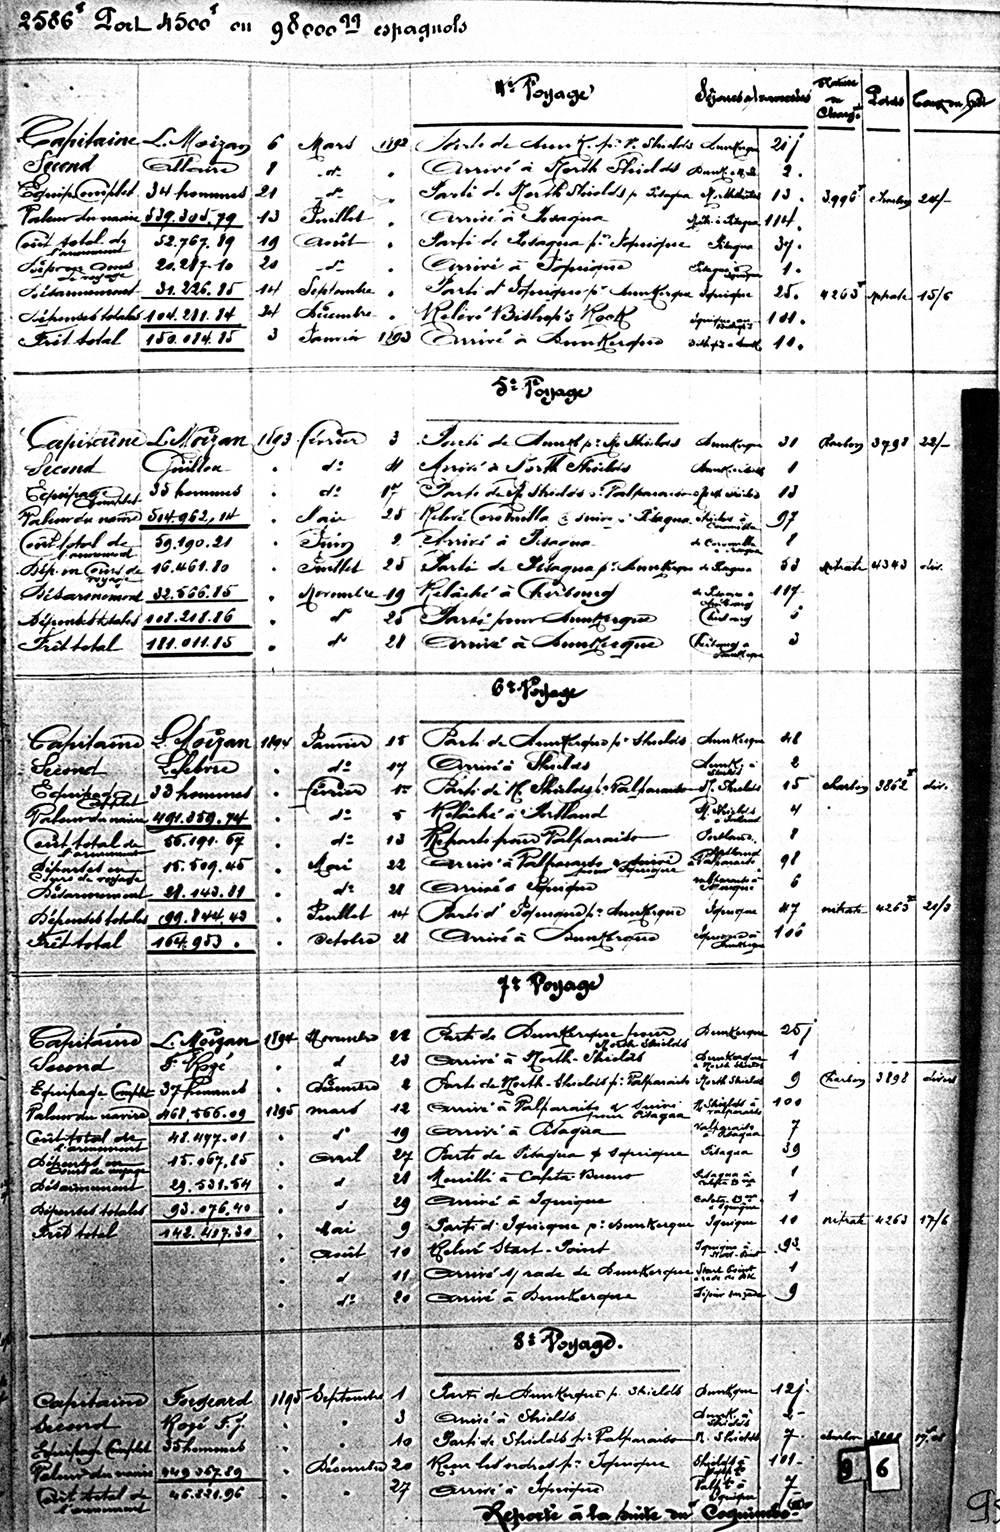 2586ᵀ Port 4500ᵀ ou 98000 qq espagnols
4ᵉ Voyage Séjours et traversées Nature du Chargᵗ Poids Taux du fret
Capitaine L. Moizan 6 Mars 1892 Dunkerque 25 j
Second Allaire 8 dᵒ . Arrivé à North Shields 2.
Equipage complet 34 hommes 21 dᵒ . Parti de North Shields pʳ Pisagua 13. 3996ᵀ Charbon 24/-
Valeur du navire 539.305.79 13 Juillet . Arrivé à Pisagua 114.
Coût total de l'armement 52.767.89 19 Août . Parti de Pisagua pʳ Iquique Pisagua 37.
Dépenses cours de voyage 20.287.10 20 dᵒ . Arrivé à Iquique 1.
Désarmement 31.226.85 14 Septembre . Parti d'Iquique pʳ Dunkerque Iquique 25. 4263ᵀ nitrate 15/6
Dépenses totales 104.281.84 24 Décembre . Relevé Bishop's Rock 101.
Frêt total 150.084.85 3 Janvier 1893 Arrivé à Dunkerque 10.
5ᵉ Voyage
Capitaine L. Moizan 1893 février 3 Parti de Dunkᵉ pʳ Nᵒ Shields Dunkerque 31 Charbon 3798 22/-
Second Guillou . dᵒ 4 Arrivé à North Shields 1
Equipage complet 35 hommes . dᵒ 17 Parti de Nᵒ Shields pʳ Valparaiso 13
Valeur du navire 514.962,14 . Mai 25 Relevé 97
Coût total de l'armement 59.190.21 . Juin 2 Arrivé à Pisagua 8
Dép. en Cours de voyage 16.461.80 . Juillet 25 Parti de Pisagua pʳ Dunkerque 53 nitrate 4343 div.
Désarmement 32.566.85 . Novembre 19 Relâché à Cherbourg 117
Dépenses totales 108.218.86 . dᵒ 25 Parti pour Dunkerque Cherbourg
Frêt total 181.011.85 . dᵒ 28 Arrivé à Dunkerque Cherbourg à Dunkerque 3
6ᵉ Voyage
Capitaine L. Moizan 1894 Janvier 15 Parti de Dunkerque pʳ Shields Dunkerque 48
Second Lefebvre . dᵒ 17 Arrivé à Shields Dunkᵉ à Shields 2
Equipage complet 33 hommes . février 1ᵉʳ Parti de N. Shields pʳ Valparaiso N. Shields 15 charbon 3862ᵀ div.
Valeur du navire 491.859.74 . dᵒ 5 Relâché à Portland N. Shields à Portland 4
Coût total de l'armement 56.191.67 . dᵒ 13 Reparti pour Valparaiso Portland 8
Dépenses en cours de voyage 15.509.45 . Mai 22 Arrivé à Valparaiso & suivi pour Iquique Portland à Valparaiso 98
Désarmement 28.143.81 . dᵒ 28 Arrivé à Iquique Valparaiso à Iquique 6
Dépenses totales 99.844.43 . Juillet 14 Parti d'Iquique pʳ Dunkerque Iquique 47 nitrate 4263ᵀ 21/3
Frêt total 164.983 . . Octobre 28 Arrivé à Dunkerque Iquique à Dunkerque 106
7ᵉ Voyage
Capitaine L. Moizan 1894 Novembre 22 Parti de Dunkerque pour North Shields Dunkerque 25 j
Second F. Rogé . d 23 Arrivé à North-Shields Dunkerque à North Shields 1
Equipage Complet 37 hommes . Décembre 2 Parti de North-Shields pʳ Valparaiso North Shields 9 Charbon 3898 divers
Valeur du navire 468,566.09 1895 mars 12 Arrivé à Valparaiso & suivi pour Pisagua N. Shields à Valparaiso 100
Coût total de l'armement 48.477.01 . dᵒ 19 Arrivé à Pisagua Valparaiso à Pisagua 7
Dépenses en cours de voyage 15.067.85 . Avril 27 Parti de Pisagua pʳ Iquique Pisagua 39
Désarmement 29.531.54 . d 28 Mouillé à Caleta Bueno Pisagua à Caleta Bᵒ 1
Dépenses totales 93.076.40 . d 29 Arrivé à Iquique Caleta Bᵒ à Iquique 1
Frêt total 142.417.30 . Mai 9 Parti d'Iquique pʳ Dunkerque Iquique 10 nitrate 4263 17/6
. Août 10 Relevé Start-Point Iquique à Start-Point 93
. d 11 Arrivé s/ rade de Dunkerque Start Point à rade de Dkᵉ 1
. dᵒ 20 Arrivé à Dunkerque 9
8ᵉ Voyage.
Capitaine Forgeard 1895 Septembre 1 Parti de Dunkerque pʳ Shields Dunkque 12 j
Second Rogé F. J. . . 3 Arrivé à Shields Dunkᵉ à Shields 2
Equipage Complet 35 hommes . . 10 Parti de Shields pʳ Valparaiso N. Shields 7 charbon
Valeur du navire 449.367.89 . Décembre 20 Reçu les ordres pʳ Iquique 101
Coût total de l'armement 46.821.96 . . 27 Arrivé à Iquique Valpᵒ à Iquique 7
9 6
Reporté à la suite du Coquimbo